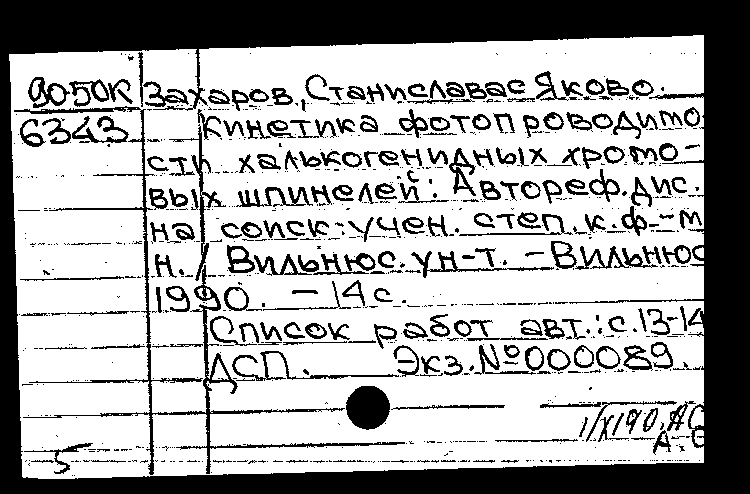 90-50К Захаров, Станиславас Яково.
6343 Кинетика фотопроводимо
сти халькогенидных хромо-
вых шпинелей: Автореф. дис.
на соиск. учен. степ. к. ф.-м
н. / Вильнюс. ун-т. - Вильнюс
1990. - 14 с.
Список работ авт.: с. 13-14
ДСП. Экз. № 000089.
1/X190. АС
5